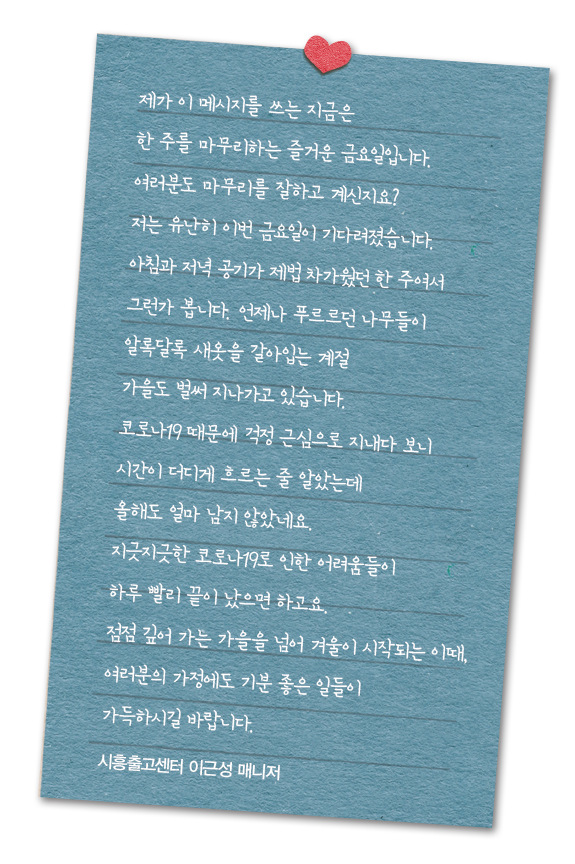 제가 이 메시지를 쓰는 지금은
한 주를 마무리하는 즐거운 금요일입니다.
여러분도 마무리를 잘하고 계신지요?
저는 유난히 이번 금요일이 기다려졌습니다.
아침과 저녁 공기가 제법 차가웠던 한 주여서
그런가 봅니다. 언제나 푸르르던 나무들이
알록달록 새옷을 갈아입는 계절
가을도 벌써 지나가고 있습니다.
코로나19 때문에 걱정 근심으로 지내다 보니
시간이 더디게 흐르는 줄 알았는데
올해도 얼마 남지 않았네요.
지긋지긋한 코로나19로 인한 어려움들이
하루 빨리 끝이 났으면 하고요.
점점 깊어 가는 가을을 넘어 겨울이 시작되는 이때,
여러분의 가정에도 기분 좋은 일들이
가득하시길 바랍니다.
시흥출고센터 이근성 매니저